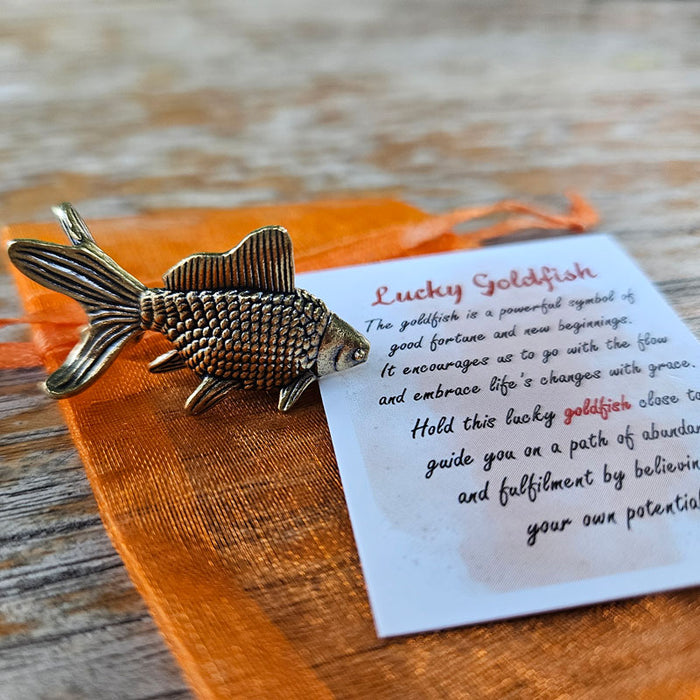 Lucky Goldfish
The goldfish is a powerful symbol of
good fortune and new beginnings.
It encourages us to go with the flow
and embrace life's changes with grace.
Hold this lucky goldfish close to
guide you on a path of abundan
and fulfilment by believin
your own potential